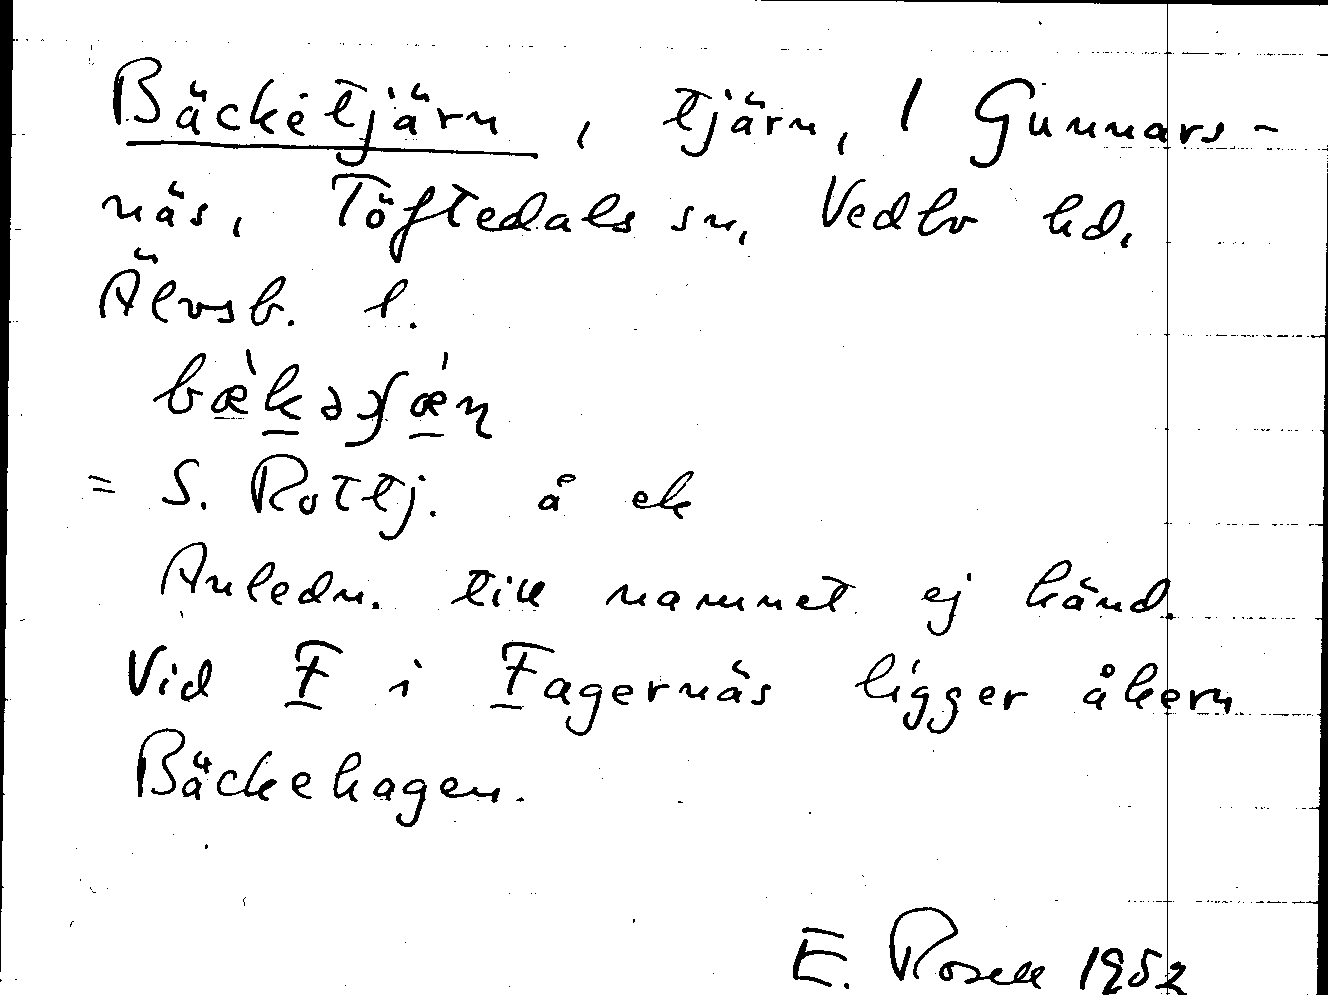 Bäcketjärn, tjärn, 1 Gunnars-
näs, Töftedals sn, Vedbo hd,
Älvsb. l.
= S. Rottj. å ek
Anledn. till namnet ej känd.
Vid F i Fagernäs ligger åkern
Bäckehagen.
E. Rosell 1952